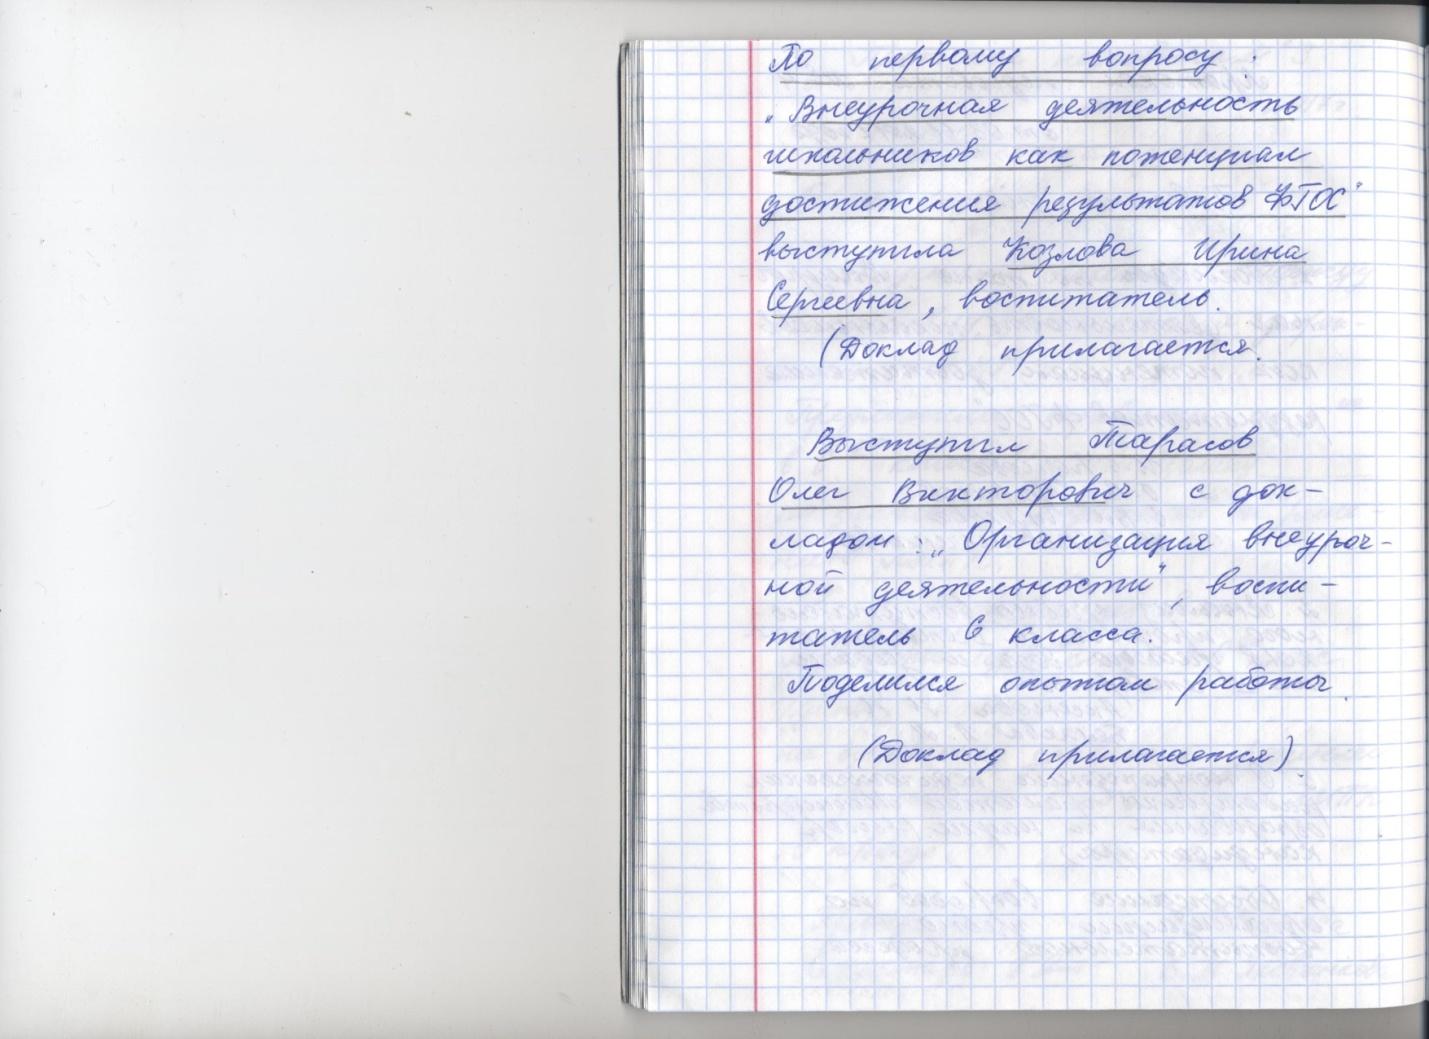 По первому вопросу:
„Внеурочная деятельность
школьников как потенциал
достижения результатов ФГОС"
выступила Козлова Ирина
Сергеевна, воспитатель.
(Доклад прилагается.
Выступил Тарасов
Олег Викторович с док-
ладом: „Организация внеуроч-
ной деятельности", воспи-
татель 6 класса.
Поделился опытом работы.
(Доклад прилагается).